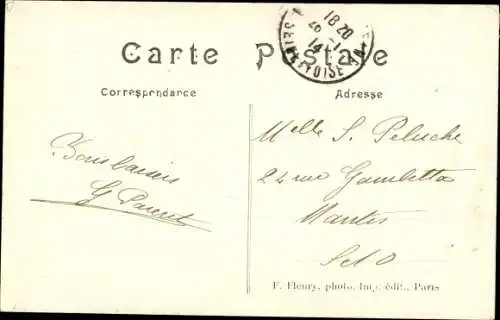 Carte Postale
18 20
26 -1
14
SEINE-ET-OISE
Correspondance
Adresse
Bons baisers
G Parent
Melle S. Peluche
24 rue Gambetta
Mantes
S et O
F. Fleury, photo. Imp. édit., Paris